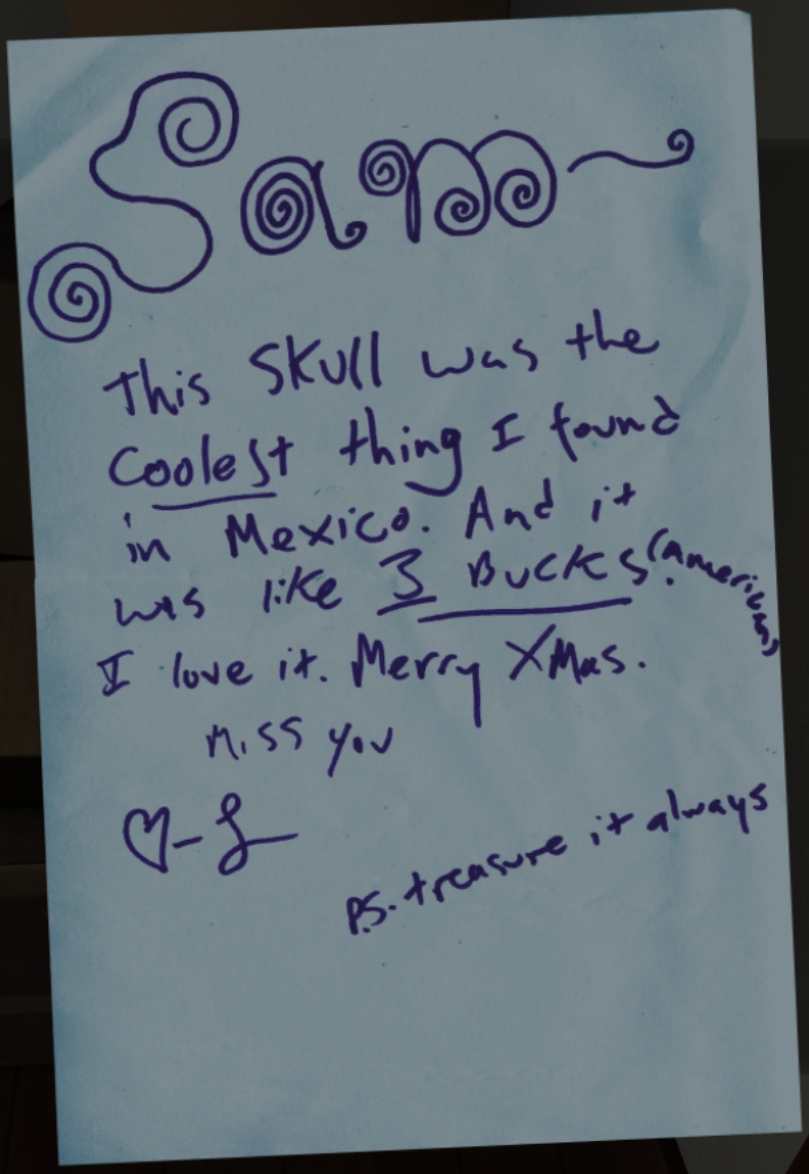 Sam~
This Skull was the
Coolest thing I found
in Mexico. And it
was like 3 Bucks. (american)
I love it. Merry XMas.
Miss you
♡-L
P.S. treasure it always